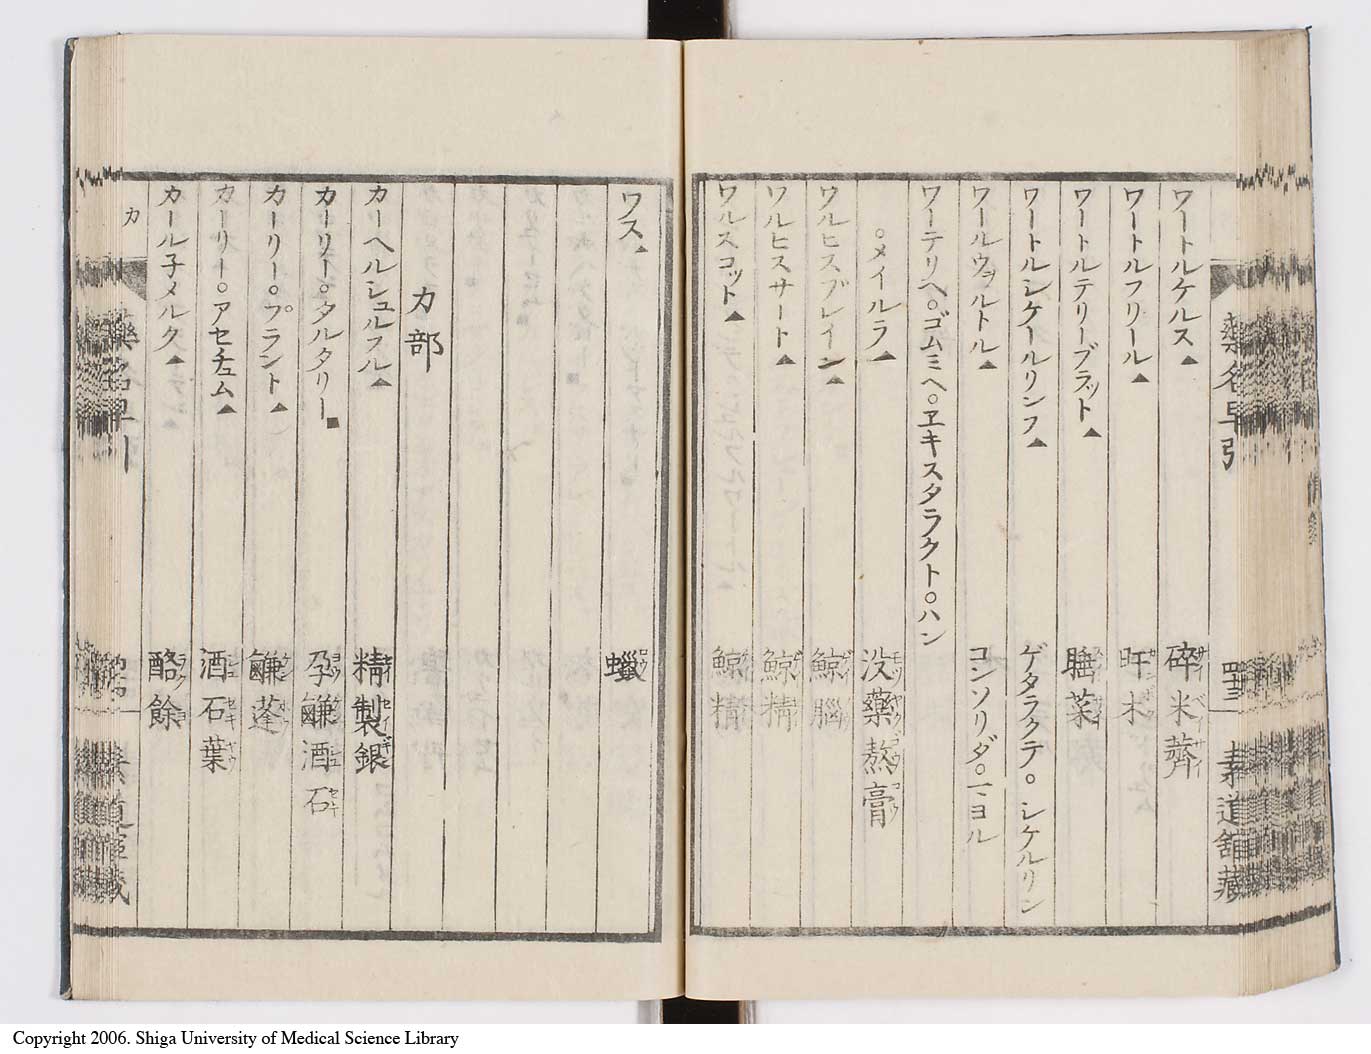 藥名早引
四十三
素道舘藏
ワートルケルス▲ 碎米薺
ワートルフリール▲
ワートルテリーブラット▲
ワートルシケールリンフ▲ ゲタラクテ。シケルリン
ワールウヲルトル▲ コンソリダ。マヨル
ワーテリヘ。ゴムミヘ。ヱキスタラクト。ハン
。メイルラ▲ 没藥熬膏
ワルヒスブレイン▲ 鯨腦
ワルヒスサート▲ 鯨精
ワルスコット▲ 鯨精
ワス▲ 蠟
カ部
カーヘルシュルフル▲ 精製銀
カーリー。タルタリー■ 孕鹻酒石
カーリー。プラント▲ 鹻蓬
カーリー。アセチュム▲ 酒石葉
カール子メルク▲ 酪餘
カ
藥名早引
Copyright 2006. Shiga University of Medical Science Library